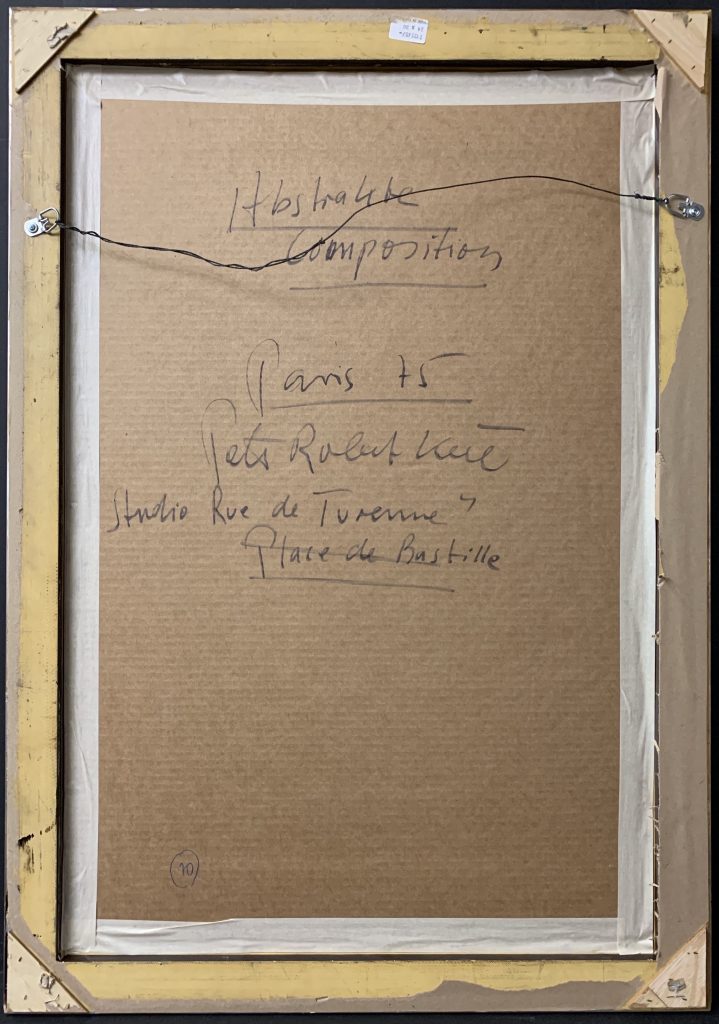 Abstrakte
Composition
Paris 75
Peter Robert Keil
Studio Rue de Turenne"
Place de Bastille